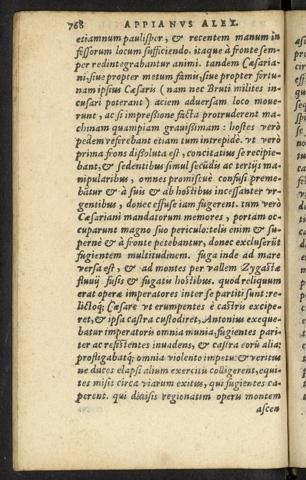 768 APPIANVS ALEX.
etiamnum paulisper, & recentem manum in
fessorum locum sufficiendo. itaque à fronte sem-
per redintegrabantur animi. tandem Cæsaria-
ni, siue propter metum famis, siue propter fortu-
nam ipsius Cæsaris (nam nec Bruti milites in-
cusari poterant) aciem aduersam loco moue-
runt, ac si impressione facta protruderent ma-
chinam quampiam grauissimam: hostes verò
pedem referebant etiam tum intrepidè. vt verò
prima frons dissoluta est, concitatius se recipie-
bant, & sedentibus simul secūdis ac tertijs ma-
nipularibus, omnes promiscuè confusi preme-
bātur & à suis & ab hostibus incessanter vr-
gentibus, donec effuse iam fugerent. tum verò
Cæsariani mandatorum memores, portam oc-
cuparunt magno suo periculo: telis enim & su-
pernè & à fronte petebantur, donec excluserūt
fugientem multitudinem. fuga inde ad mare
versa est, & ad montes per vallem Zygastæ
fluuij fusis & fugatis hostibus. quod reliquum
erat operæ imperatores inter se partiti sunt: re-
lictoq́; Cæsare vt erumpentes è castris excipe-
ret, & ipsa castra custodiret, Antonius exeque-
batur imperatoris omnia munia, fugientes pari-
ter ac resistentes inuadens, & castra eorū alia:
prostigabatq́; omnia violento impetu: & veritus
ne duces elapsi alium exercitū colligerent, equi-
tes misit circa viarum exitus, qui fugientes ca-
perent. qui diuisis regionatim operis montem
ascen